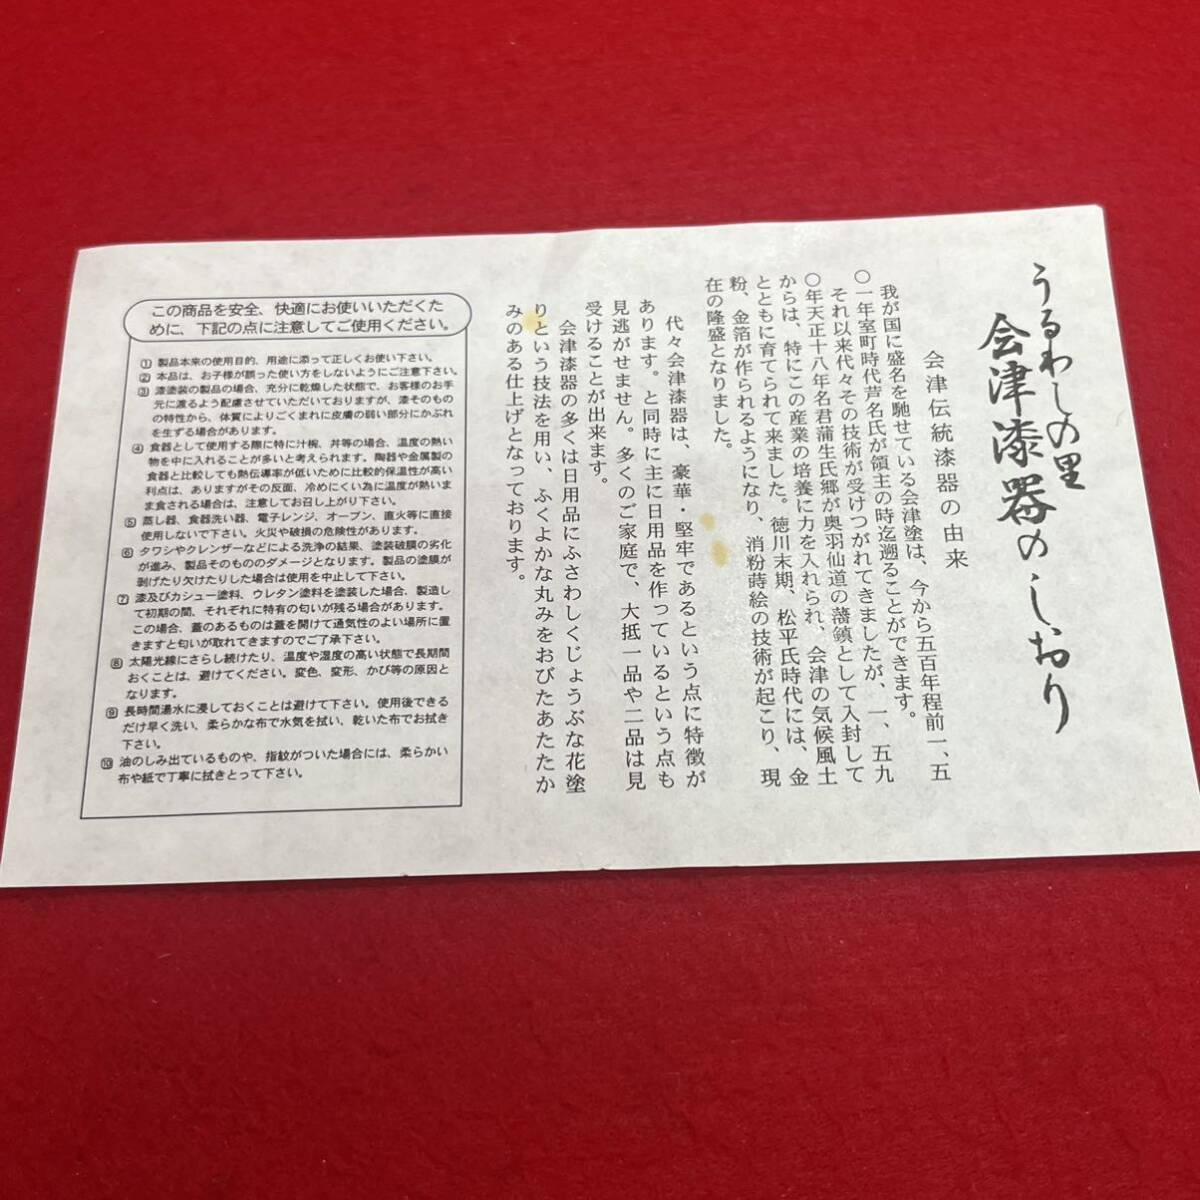 うるわしの里
会津漆器のしおり
会津伝統漆器の由来
我が国に盛名を馳せている会津塗は、今から五百年程前一、五
〇一年室町時代芦名氏が領主の時迄遡ることができます。
それ以来代々その技術が受けつがれてきましたが、一、五九
〇年天正十八年名君蒲生氏郷が奥羽仙道の藩鎮として入封して
からは、特にこの産業の培養に力を入れられ、会津の気候風土
とともに育てられて来ました。徳川末期、松平氏時代には、金
粉、金箔が作られるようになり、消粉蒔絵の技術が起こり、現
在の隆盛となりました。
代々会津漆器は、豪華・堅牢であるという点に特徴が
あります。と同時に主に日用品を作っているという点も
見逃がせません。多くのご家庭で、大抵一品や二品は見
受けることが出来ます。
会津漆器の多くは日用品にふさわしくじょうぶな花塗
りという技法を用い、ふくよかな丸みをおびたあたたか
みのある仕上げとなっております。
この商品を安全、快適にお使いいただくた
めに、下記の点に注意してご使用ください。
① 製品本来の使用目的、用途に添って正しくお使い下さい。
② 本品は、お子様が誤った使い方をしないようにご注意下さい。
③ 漆塗装の製品の場合、充分に乾燥した状態で、お客様のお手
元に渡るよう配慮させていただいておりますが、漆そのもの
の特性から、体質によりごくまれに皮膚の弱い部分にかぶれ
を生ずる場合があります。
④ 食器として使用する際に特に汁椀、丼等の場合、温度の熱い
物を中に入れることが多いと考えられます。陶器や金属製の
食器と比較しても熱伝導率が低いために比較的保温性が高い
利点は、ありますがその反面、冷めにくい為に温度が熱いま
ま食される場合は、注意してお召し上がり下さい。
⑤ 蒸し器、食器洗い器、電子レンジ、オーブン、直火等に直接
使用しないで下さい。火災や破損の危険性があります。
⑥ タワシやクレンザーなどによる洗浄の結果、塗装破膜の劣化
が進み、製品そのもののダメージとなります。製品の塗膜が
剥げたり欠けたりした場合は使用を中止して下さい。
⑦ 漆及びカシュー塗料、ウレタン塗料を塗装した場合、製造し
て初期の間、それぞれに特有の匂いが残る場合があります。
この場合、蓋のあるものは蓋を開けて通気性のよい場所に置
きますと匂いが取れてきますのでご了承下さい。
⑧ 太陽光線にさらし続けたり、温度や湿度の高い状態で長期間
おくことは、避けてください。変色、変形、かび等の原因と
なります。
⑨ 長時間湯水に浸しておくことは避けて下さい。使用後できる
だけ早く洗い、柔らかな布で水気を拭い、乾いた布でお拭き
下さい。
⑩ 油のしみ出ているものや、指紋がついた場合には、柔らかい
布や紙で丁寧に拭きとって下さい。